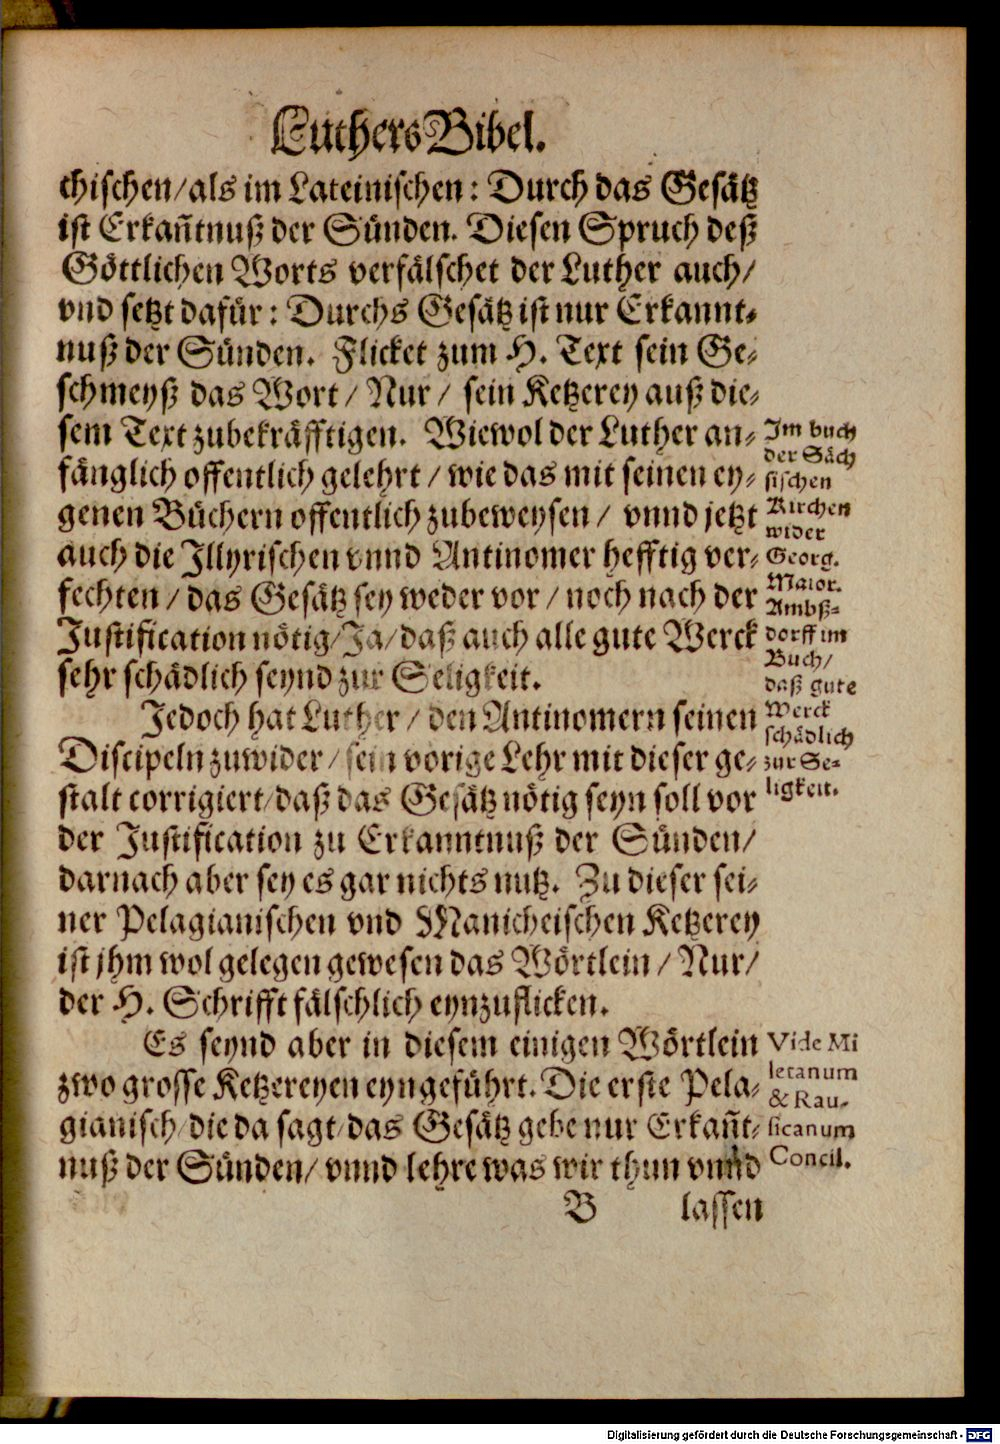 Luthers Bibel.
chischen/als im Lateinischen: Durch das Gesätz
ist Erkañtnuß der Sünden. Diesen Spruch deß
Göttlichen Worts verfälschet der Luther auch/
vnd setzt dafür: Durchs Gesätz ist nur Erkannt-
nuß der Sünden. Flicket zum H. Text sein Ge-
schmeyß das Wort/ Nur/ sein Ketzerey auß die-
sem Text zubekräfftigen. Wiewol der Luther an-
fänglich offentlich gelehrt/ wie das mit seinen ey-
genen Büchern offentlich zubeweysen/ vnnd jetzt
auch die Illyrischen vnnd Antinomer hefftig ver-
fechten/ das Gesätz sey weder vor/ noch nach der
Justification nötig/Ja/daß auch alle gute Werck
sehr schädlich seynd zur Seligkeit.
Im buch
der Säch
sischen
Kirchen
wider
Georg.
Maior.
Ambß-
dorff im
Buch/
daß gute
Werck
schädlich
zur Se-
ligkeit.
Jedoch hat Luther/ den Antinomern seinen
Discipeln zuwider/ sein vorige Lehr mit dieser ge-
stalt corrigiert/daß das Gesätz nötig seyn soll vor
der Justification zu Erkanntnuß der Sünden/
darnach aber sey es gar nichts nutz. Zu dieser sei-
ner Pelagianischen vnd Manicheischen Ketzerey
ist jhm wol gelegen gewesen das Wörtlein/ Nur/
der H. Schrifft fälschlich eynzuflicken.
Es seynd aber in diesem einigen Wörtlein
zwo grosse Ketzereyen eyngeführt. Die erste Pela-
gianisch/die da sagt/das Gesätz gebe nur Erkañt-
nuß der Sünden/ vnnd lehre was wir thun vnnd
Vide Mi
letanum
& Rau-
sicanum
Concil.
B lassen
Digitalisierung gefördert durch die Deutsche Forschungsgemeinschaft - DFG